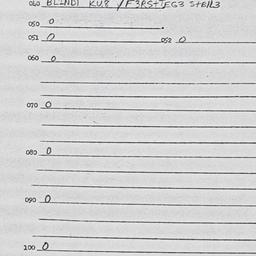 040 BLINDT KUR /F3RSTJEG3 St3ll3
050 0
051 0 052 0
060 0
070 0
080 0
090 0
100 0